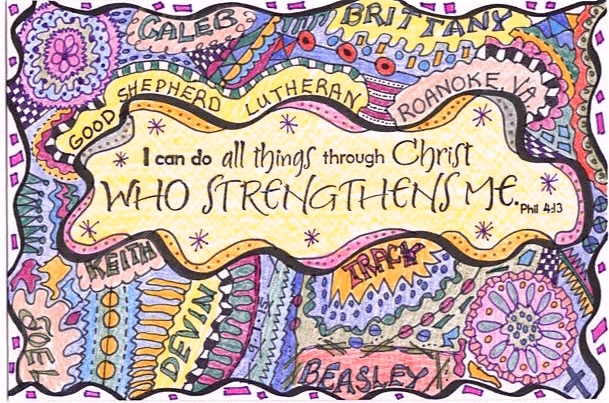 CALEB
BRITTANY
GOOD SHEPHERD LUTHERAN
ROANOKE, VA
I can do all things through Christ
WHO STRENGTHENS ME.
Phil 4:13
KEITH
TRACK
JOEL
DEVIN
BEASLEY